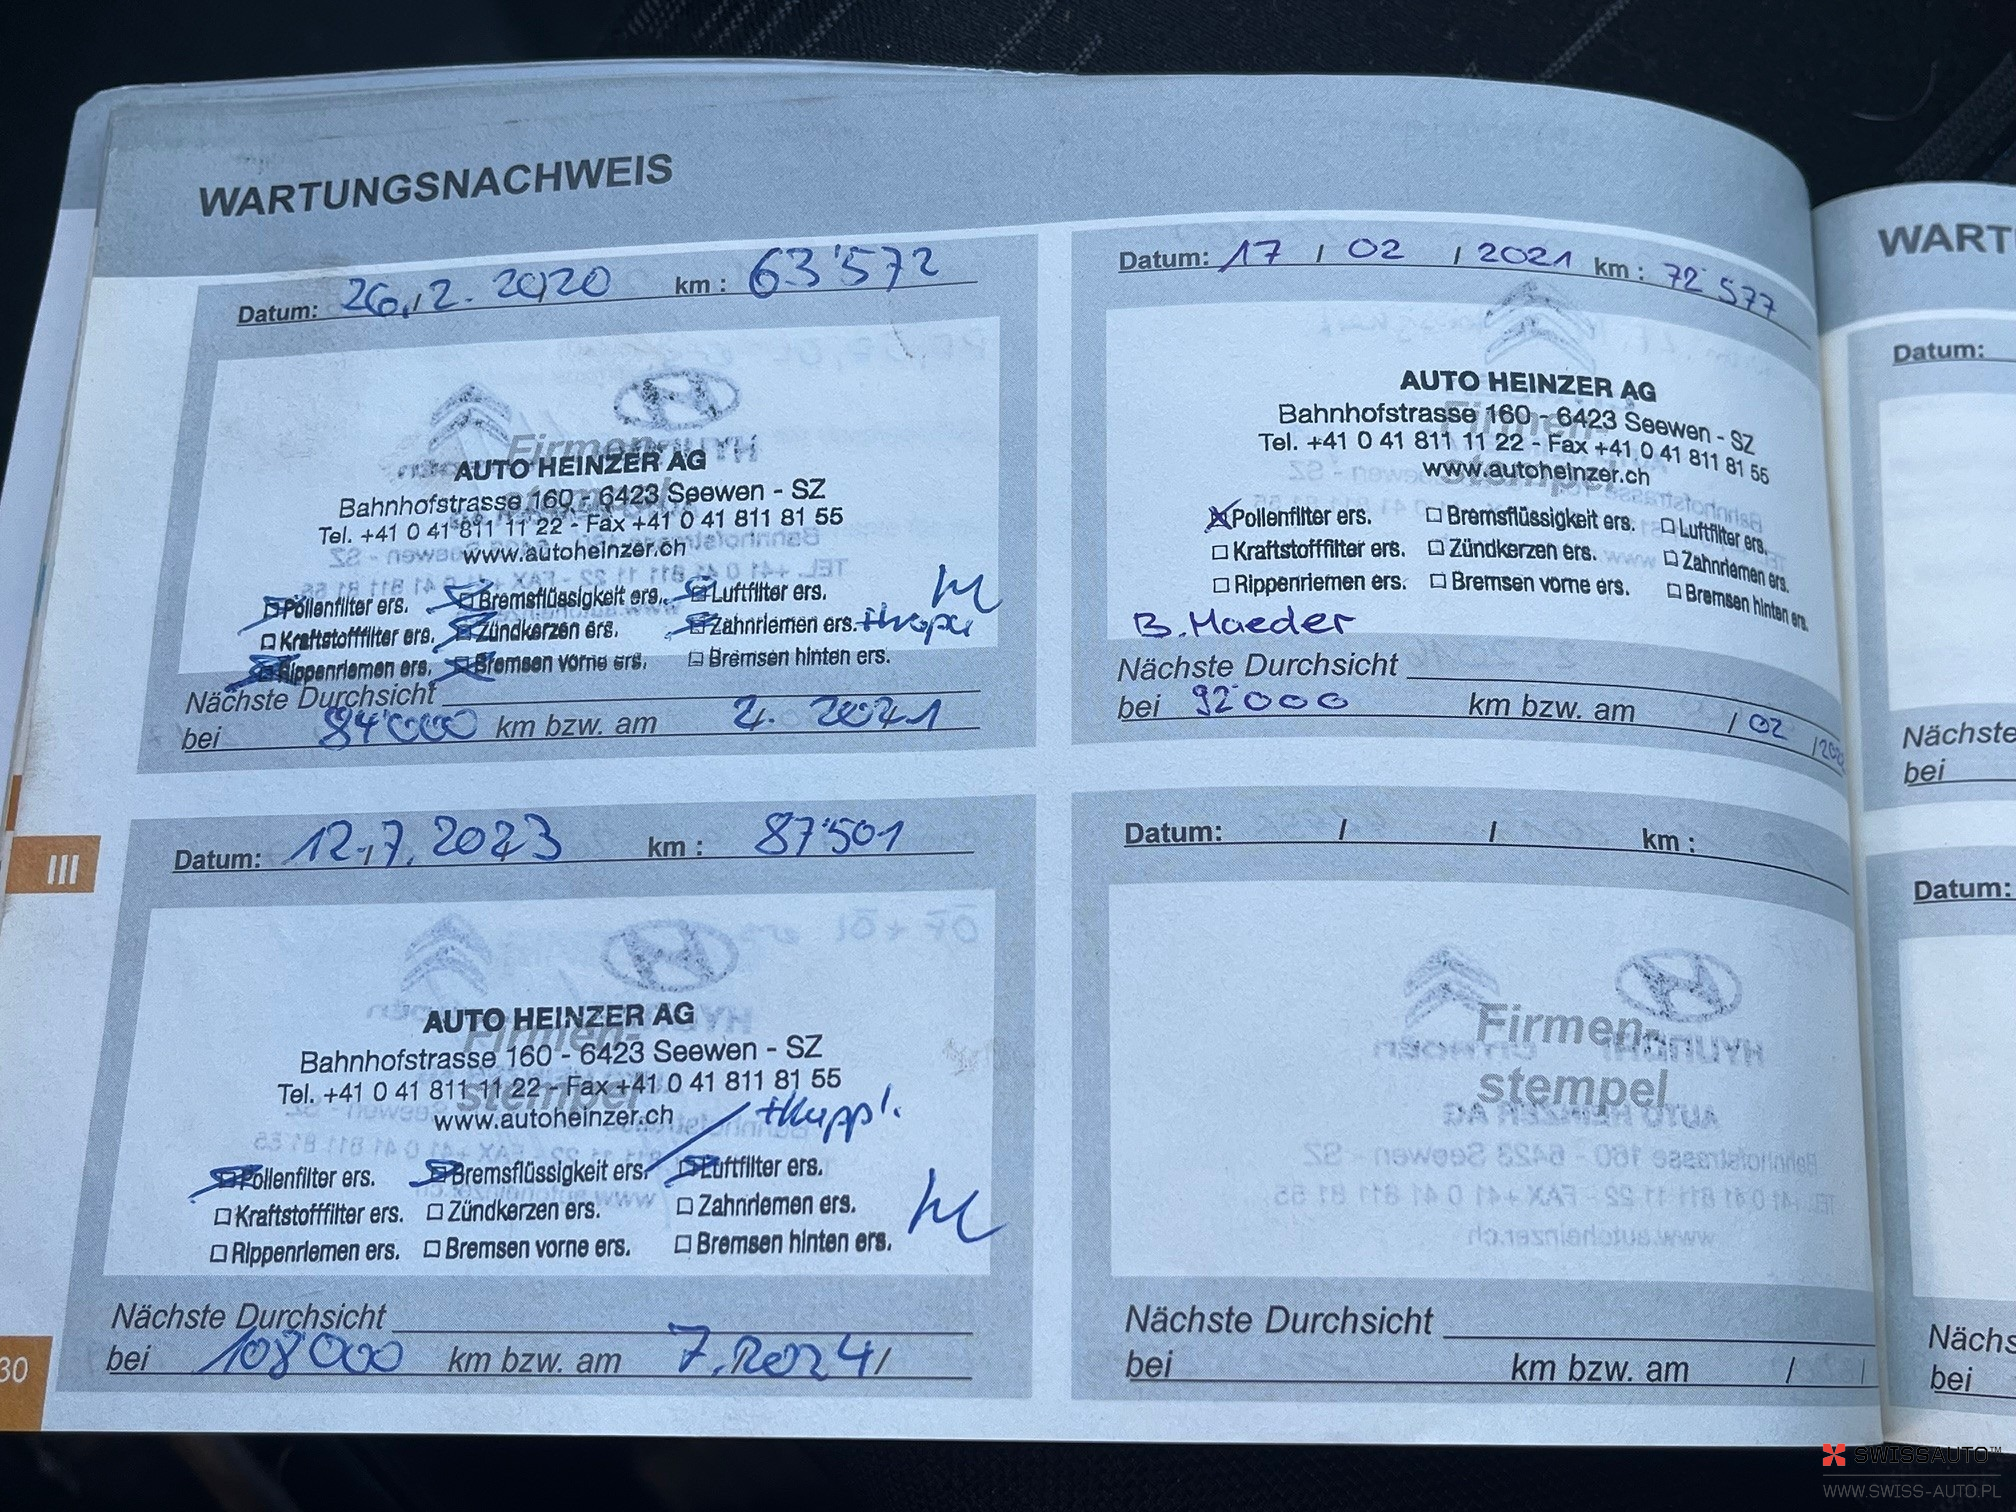 WARTUNGSNACHWEIS
Datum: 26.2.2020 km : 63'572
Firmen-
stempel
AUTO HEINZER AG
Bahnhofstrasse 160 - 6423 Seewen - SZ
Tel. +41 0 41 811 11 22 - Fax +41 0 41 811 81 55
www.autoheinzer.ch
Pollenfilter ers. Bremsflüssigkeit ers. Luftfilter ers.
Kraftstofffilter ers. Zündkerzen ers. Zahnriemen ers.
Rippenriemen ers. Bremsen vorne ers. Bremsen hinten ers.
Nächste Durchsicht
bei 84'000 km bzw. am 2. 2021
Datum: 17 / 02 / 2021 km : 72'577
Firmen-
stempel
AUTO HEINZER AG
Bahnhofstrasse 160 - 6423 Seewen - SZ
Tel. +41 0 41 811 11 22 - Fax +41 0 41 811 81 55
www.autoheinzer.ch
Pollenfilter ers. Bremsflüssigkeit ers. Luftfilter ers.
Kraftstofffilter ers. Zündkerzen ers. Zahnriemen ers.
Rippenriemen ers. Bremsen vorne ers. Bremsen hinten ers.
B. Maeder
Nächste Durchsicht
bei 92'000 km bzw. am / 02 /
Datum: 12.7.2023 km : 87'501
Firmen-
stempel
AUTO HEINZER AG
Bahnhofstrasse 160 - 6423 Seewen - SZ
Tel. +41 0 41 811 11 22 - Fax +41 0 41 811 81 55
www.autoheinzer.ch
+Kuppl.
Pollenfilter ers. Bremsflüssigkeit ers. Luftfilter ers.
Kraftstofffilter ers. Zündkerzen ers. Zahnriemen ers.
Rippenriemen ers. Bremsen vorne ers. Bremsen hinten ers.
Nächste Durchsicht
bei 108'000 km bzw. am 7.2024/
Datum: / / km :
Firmen-
stempel
Nächste Durchsicht
bei km bzw. am / /
III
30
WART
Datum:
Nächste
bei
Datum:
Nächs
bei
SWISSAUTO™
WWW.SWISS-AUTO.PL